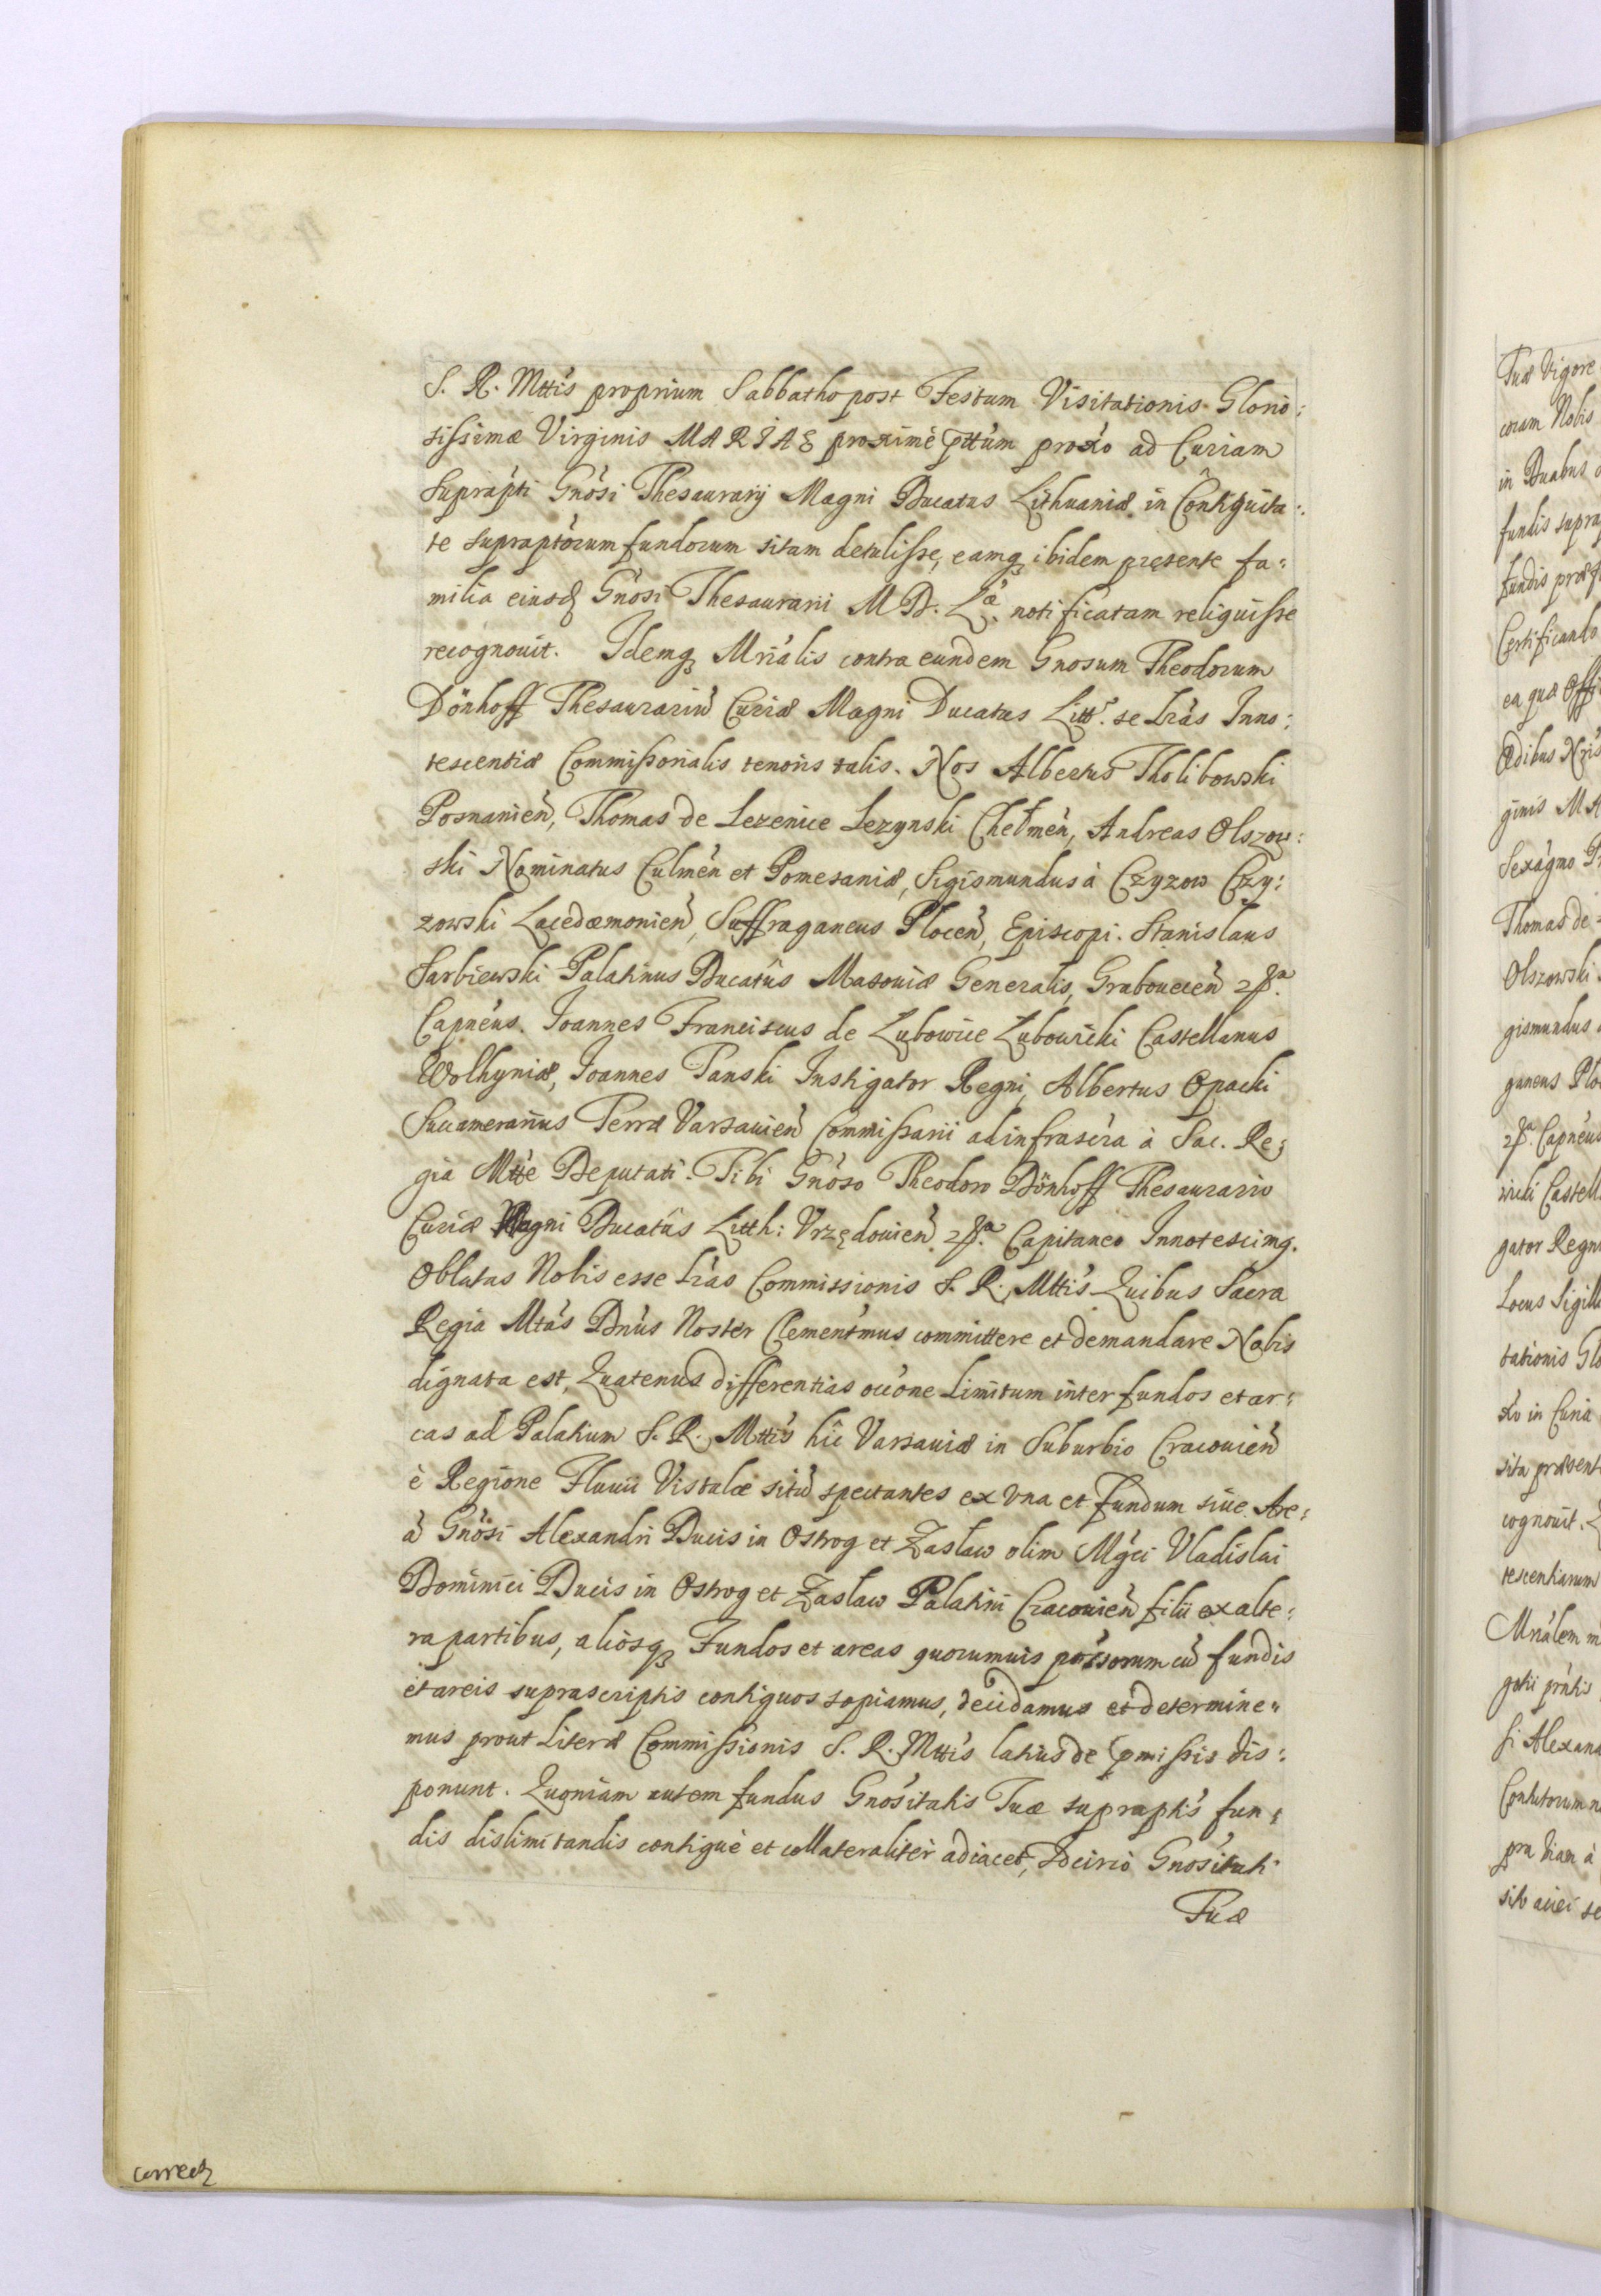 S. R. Mttis proprium Sabbatho post Festum Visitationis Glorio:
sissimæ Virginis MARIAE proximè pttum proxo ad Curiam
Suprapti Gnosi Thesaurarij Magni Ducatus Lithuaniæ in Contiguita:
te supraptorum fundorum sitam detulisse, eamq ibidem pręsente fa:
milia eiusd Gnosi Thesaurarii M D. Læ. notificatam reliquisse
recognouit. Idemq Mrialis contra eundem Gnosum Theodorum
Dönhoff Thesaurariu Curiæ Magni Ducatus Litt. se Lras Inno:
tescentiæ Commissorialis tenoris talis. Nos Albertus Tholibowski
Posnanien, Thomas de Lezenice Lezynski Chełmen, Andreas Olszow:
ski Nominatus Culmen et Pomesaniæ, Sigismundus à Czyzow Czy:
zowski Lacedæmonien, Suffraganeus Plocen, Episcopi. Stanislaus
Sarbiewski Palatinus Ducatûs Masouiæ Generalis, Grabouecen
Capneus. Joannes Franciscus de Lubowice Lubowicki Castellanus
Wolhyniæ, Joannes Tanski Instigator Regni, Albertus Opacki
Succamerarius Terræ Varsauien Commissarii ad infrascra à Sac. Re:
gia Mtte Deputati. Tibi Gnoso Theodoro Dönhoff Thesaurario
Curiæ Magni Ducatûs Litth: Vrzędouien. Capitaneo Innotescimq.
Oblatas Nobis esse Lras Commissionis S. R. Mttis Quibus Sacra
Regia Mtas Dnus Noster Clementmus committere et demandare Nobis
dignata est, Quatenus differentias occone Limitum inter fundos et ar:
eas ad Palatium S. R. Mttis hîc Varsauiæ in Suburbio Cracouien
è Regione Fluuii Vistulæ situ spectantes ex vna et fundum siue Are:
a Gnosi Alexandri Ducis in Ostrog et Zasław olim Mgci Vladislai
Dominici Ducis in Ostrog et Zasław Palatini Cracouien filii ex alte:
ra partibus, aliosq Fundos et areas quorumuis possorum cu fundis
et areis suprascriptis contiguos sopiamus, decidamus et determine:
mus prout Literæ Commissionis S. R. Mttis latius de pmissis dis:
ponunt. Quoniam autem fundus Gnositatis Tuæ supraptis fun:
dis dislimitandis contiguè et collateraliter adiacet, Idcirco Gnositati
Tuæ
correct
Tuæ Vigore
coram Nobis
in Duabus
fundis supra
fundis præf
Certificando
ea quæ Offi
Ædibus Nris
ginis MA
Sexagmo
Thomas de
Olszowski
gismundus
ganeus Plo
Capneus
wicki Castell
gator Regni
Locus Sigill
tationis Glo
xo in Curia
sita præsent
cognouit.
tescentiarum
Mrialem m
gotii prntis
si Alexand